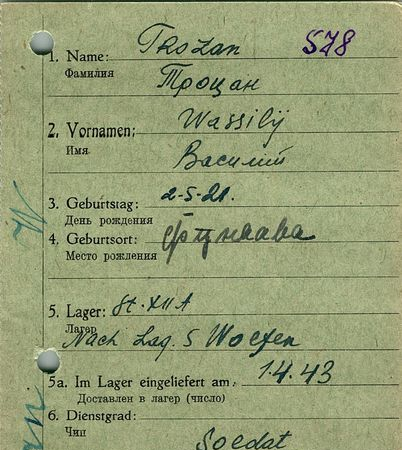 Trozan 578
1. Name:
Фамилия Троцан
Wassilij
2. Vornamen:
Имя Василий
3. Geburtstag: 2-5-21.
День рождения
4. Geburtsort:
Место рождения
5. Lager: St. XII A
Лагер
Nach Lag. S Wolfen
5a. Im Lager eingeliefert am: 1.4.43
Доставлен в лагер (число)
6. Dienstgrad:
Чин Soldat